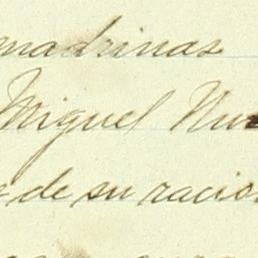 madrinas
Miguel Nu
e de su racio